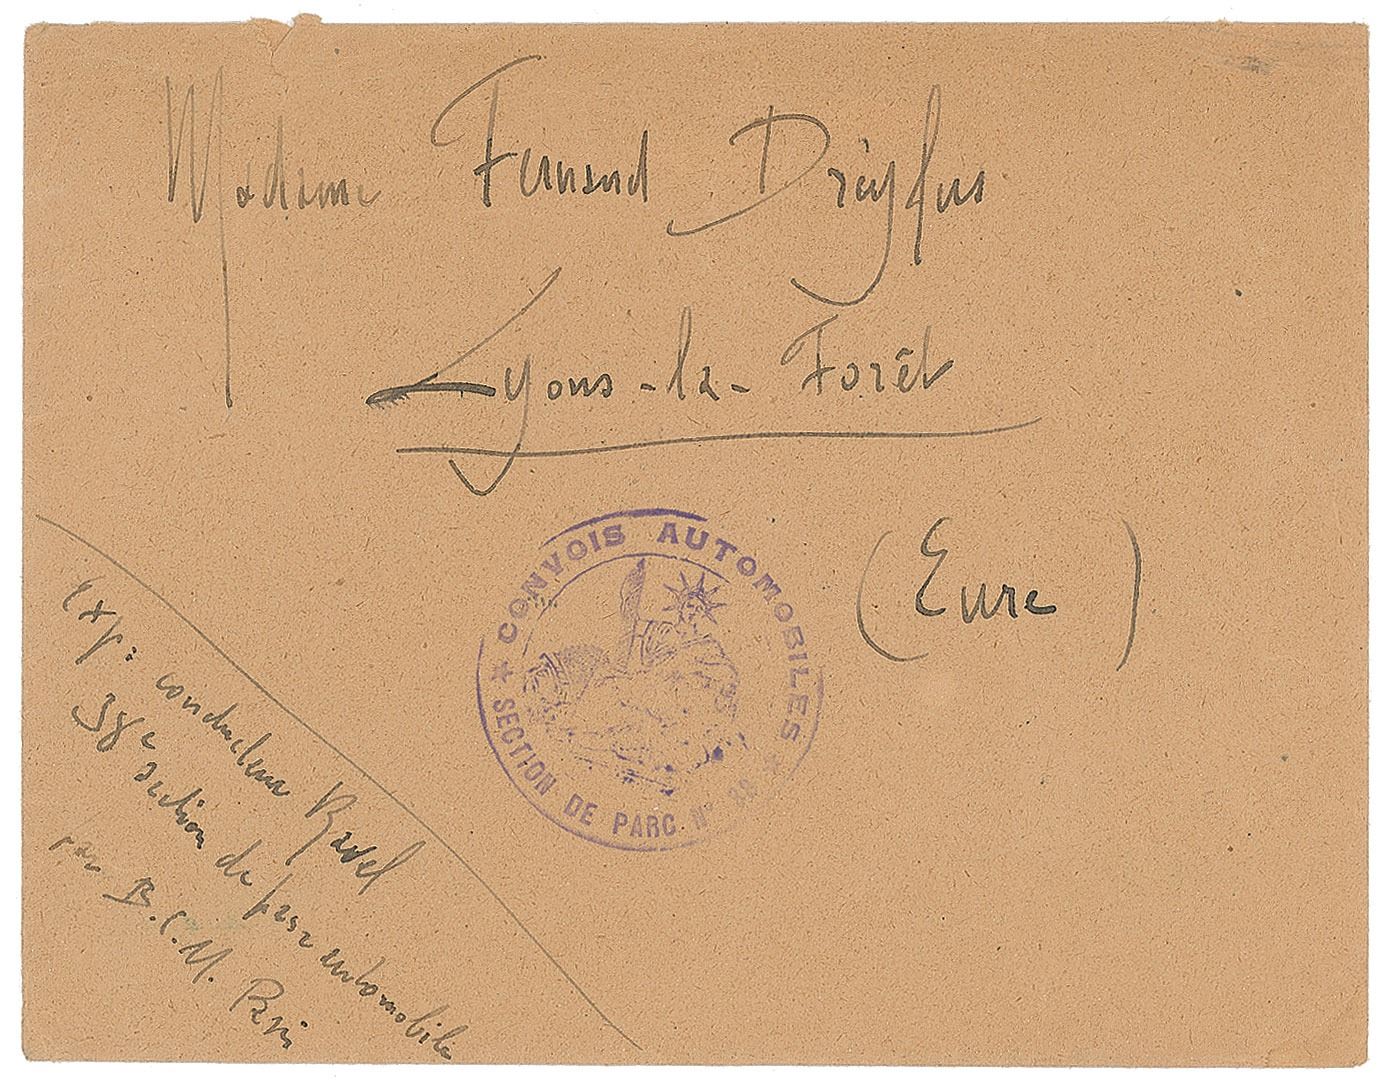 Madame Fernand Dreyfus
Lyons-la-Forêt
(Eure)
CONVOIS AUTOMOBILES
* SECTION DE PARC N° *
exp: conducteur Ravel
de parc automobile
par B.C.M. Paris